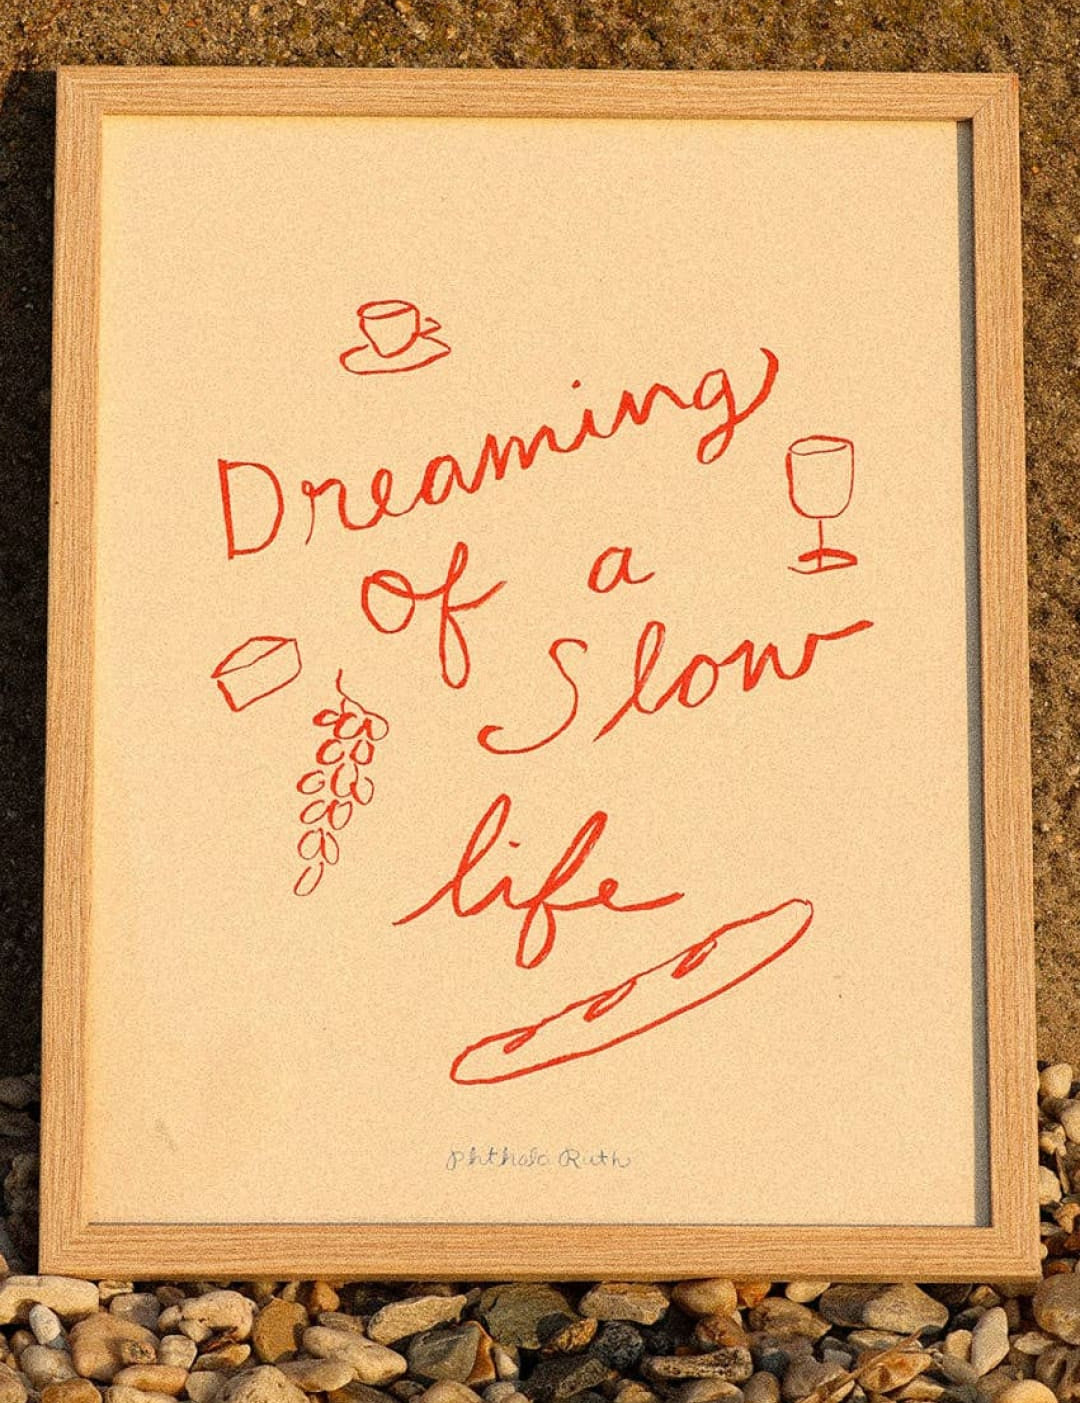 Dreaming
of a
Slow
life
Phthalo Ruth